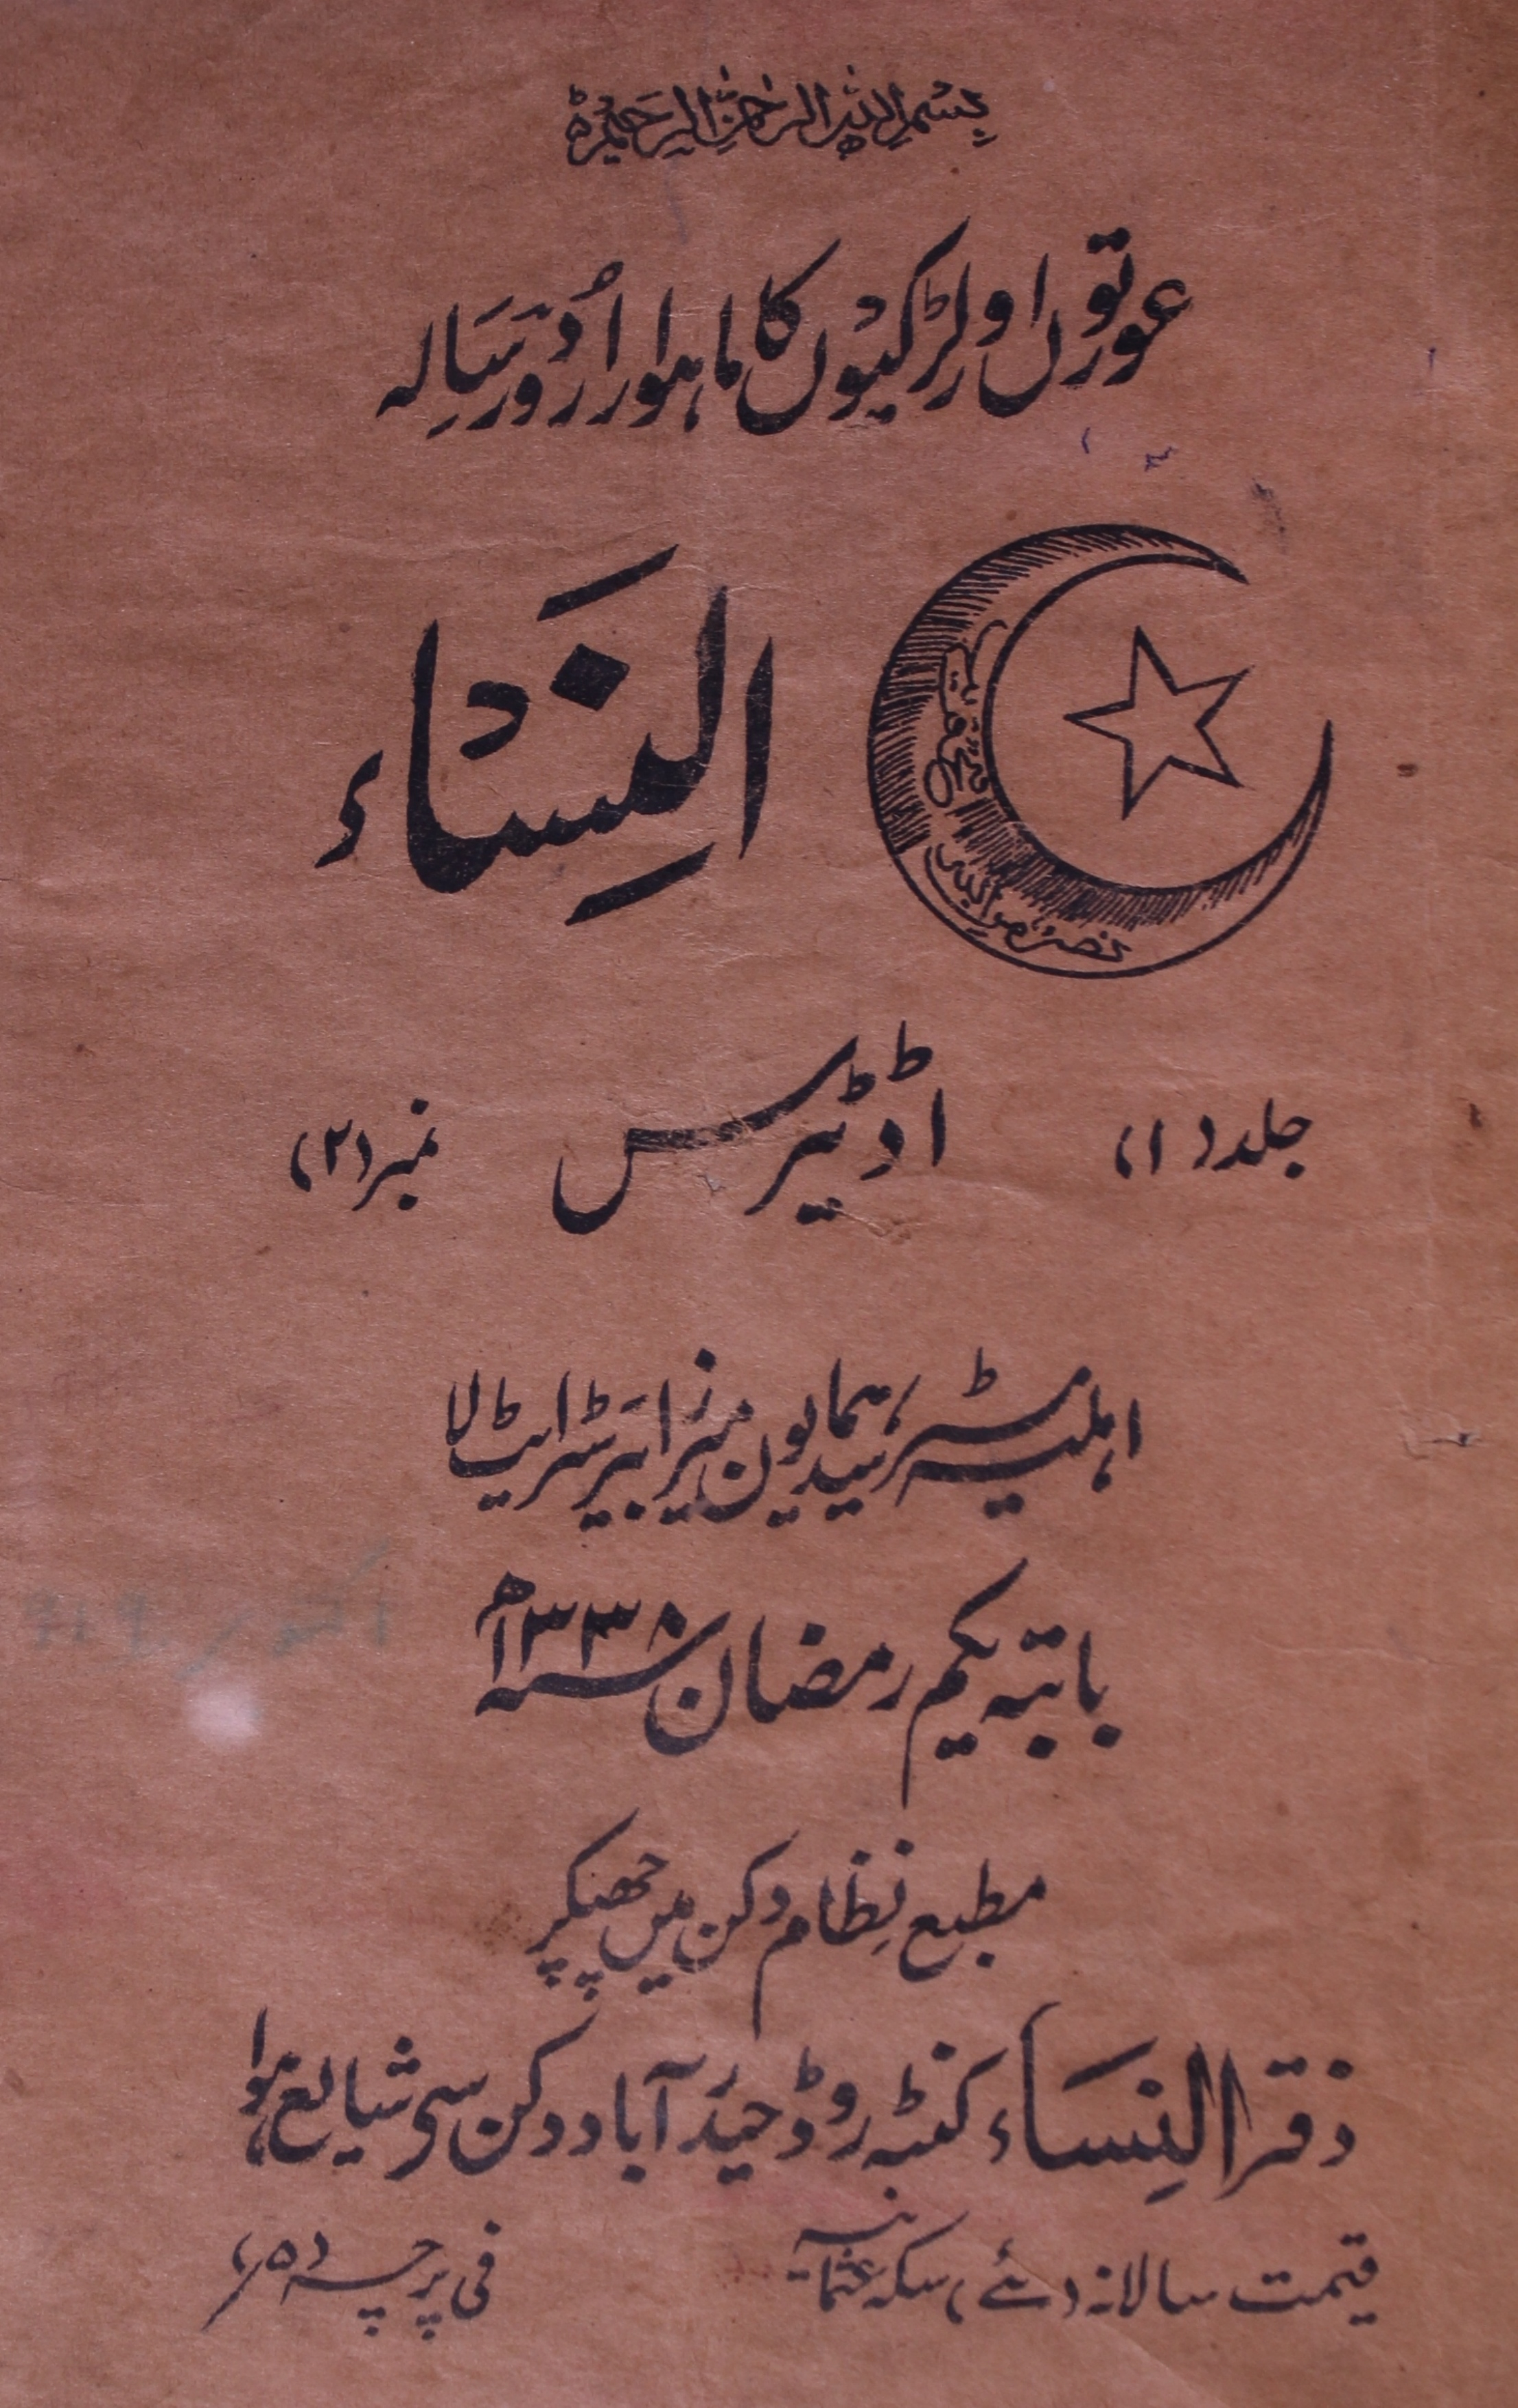 بِسْمِ اللهِ الرَّحْمٰنِ الرَّحِيْمِ ط
عورتوں اور لڑکیوں کا ماہوار اُردو رسَالہ
النِسَاء
جلد (۱)
اڈیٹرس
نمبر (۲)
اہلیہ مسٹر سید ہمایون میرزا بیرسٹر ایٹ لا
بابتہ یکم رمضان سنہ ۱۳۳۸ھ
اکتوبر ۱۹۱۹
مطبع نِظام دکن میں چھپکر
دفتر النِسَاء کنٹہ روڈ حیدَرآباد دکن سی شایع ہوا
قیمت سالانہ سکہ عثمانیہ
فی پرچہ (۵؍)